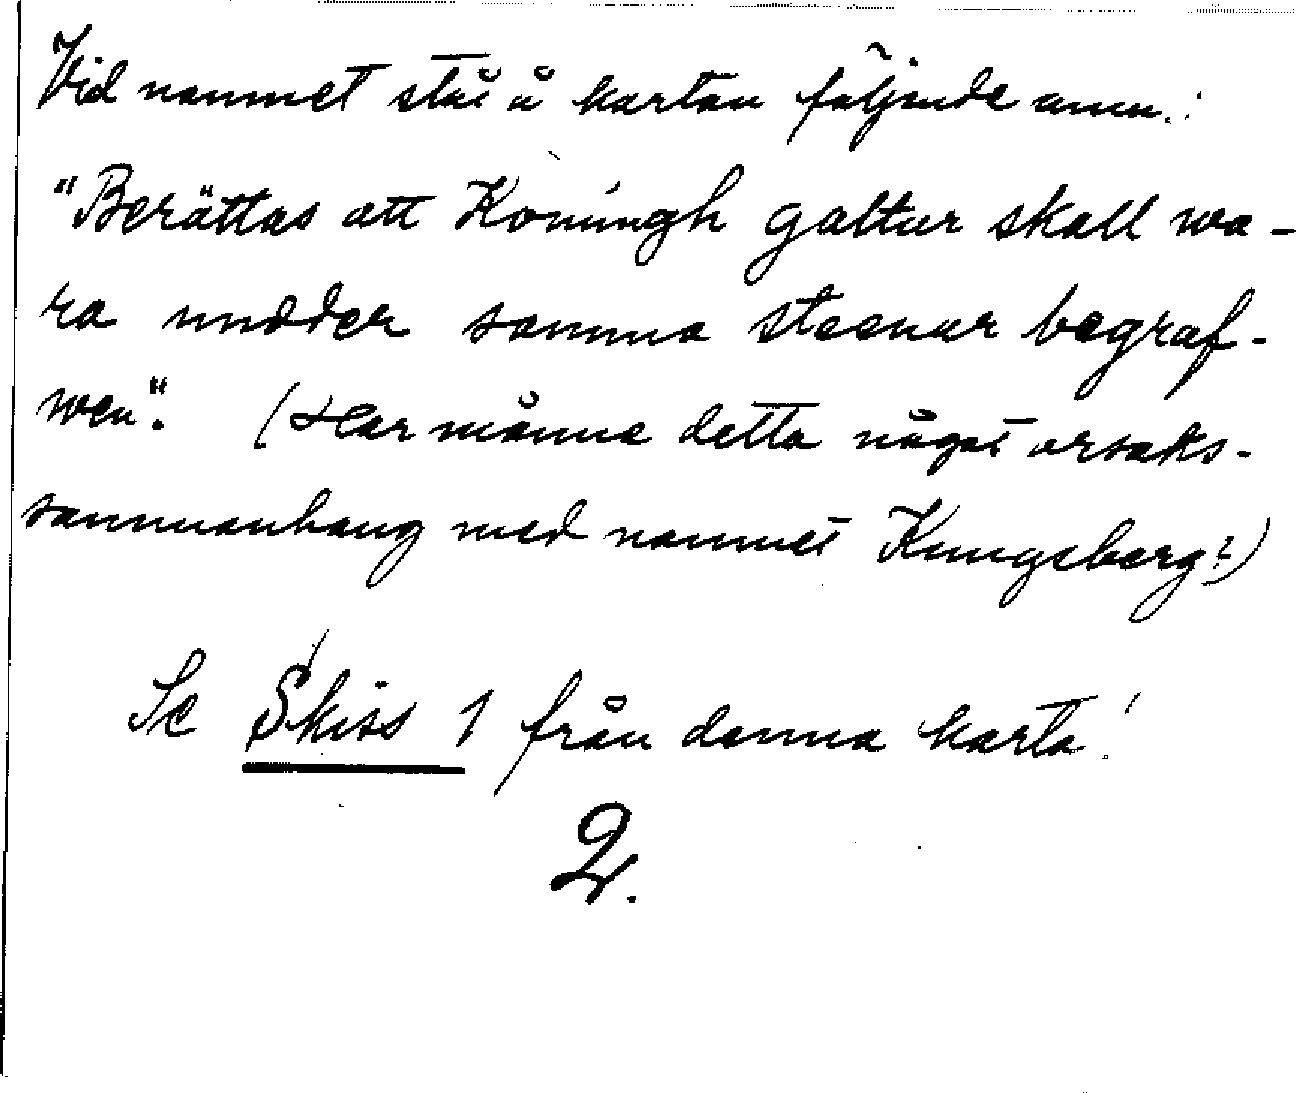 Vid namnet står å kartan följande anm.:
"Berättas att Koningh galtur skall wa-
ra undder samma steenar begraf-
wen". (Har månne detta något orsaks-
sammanhang med namnet Kungsberg?)
Se Skiss 1 från denna karta!
2.